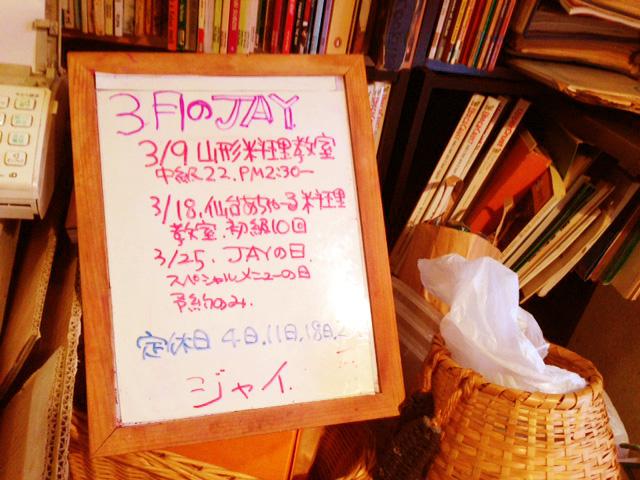 3月のJAY
3/9 山形料理教室
中級22. PM2:30〜
3/18. 仙台あちゃーる料理
教室. 初級10回
3/25. JAYの日.
スペシャルメニューの日
予約のみ.
定休日 4日. 11日. 18日.
ジャイ.